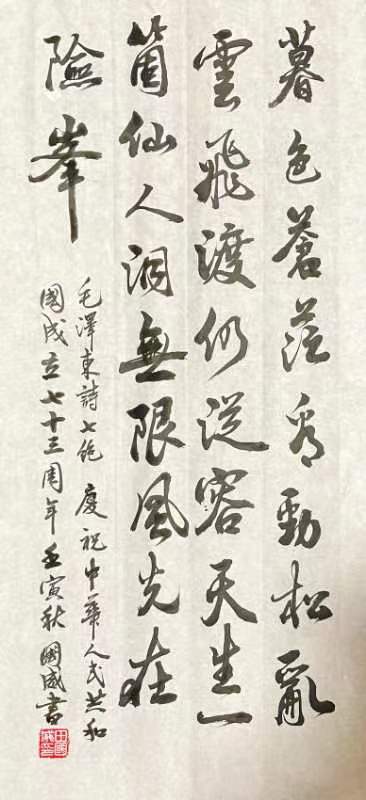 暮色蒼茫看勁松亂
雲飛渡仍從容天生一
箇仙人洞無限風光在
險峯
毛澤東詩七絕 慶祝中華人民共和
國成立七十三周年壬寅秋國成書